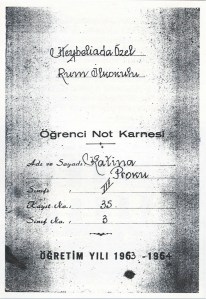 Heybeliada Özel
Rum İlkokulu
Öğrenci Not Karnesi
Adı ve Soyadı Katina
Proku
Sınıfı III
Kayıt No.: 35
Sınıf No. 3
ÖĞRETİM YILI 1963 - 1964